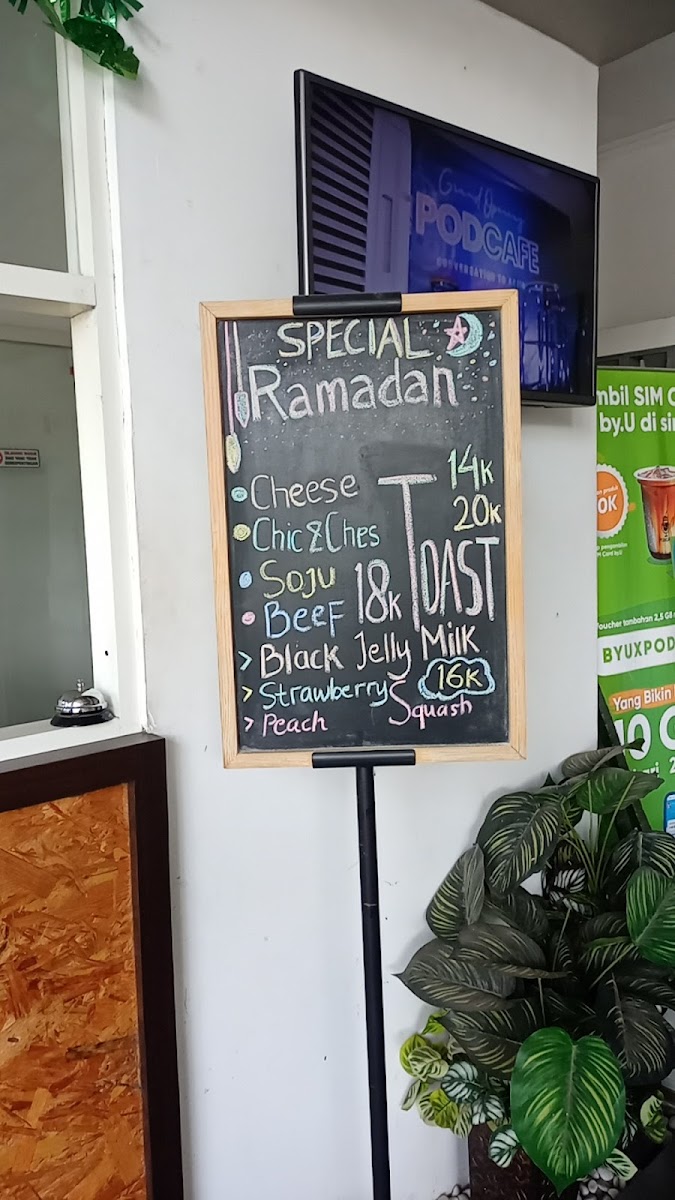 Grand Opening
PODCAFE
SPECIAL
Ramadan
Cheese
14k
Chic & Ches
20k
Soju
18k
Beef
TOAST
Black Jelly Milk
Strawberry
16k
Peach
Squash
mbil SIM C
by.U di sin
0K
Voucher tambahan 2,5 G
BYUXPOD
Yang Bikin
10 G